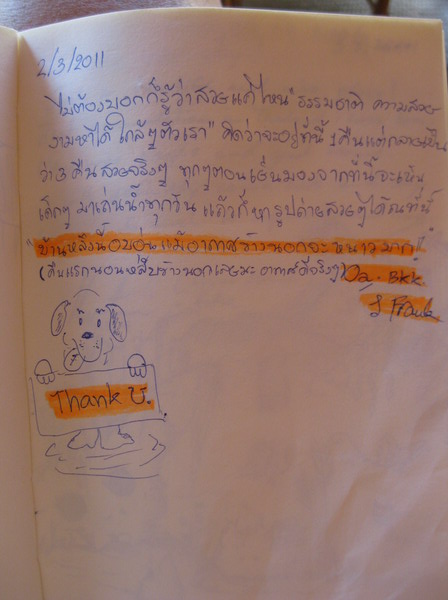 2/3/2011
ไม่ต้องบอกก็รู้ว่าสวยแค่ไหน "ธรรมชาติ ความสวย
งามหาได้ใกล้ๆตัวเรา" คิดว่าจะอยู่ที่นี้ 1 คืนแต่กลายเป็น
ว่า 3 คืน สวยจริงๆ ทุกๆตอนเย็นมองจากที่นี้จะเห็น
เด็กๆ มาเล่นน้ำทุกวัน แล้วก็หารูปถ่ายสวยๆได้ณที่นี้
"บ้านหลังนี้อบอุ่นแม้อากาศข้างนอกจะหนาวมาก"
(คืนแรกนอนหลับข้างนอกเลยนะ อากาศดีจริงๆ) Da. BKK
& Frank
Thank U.